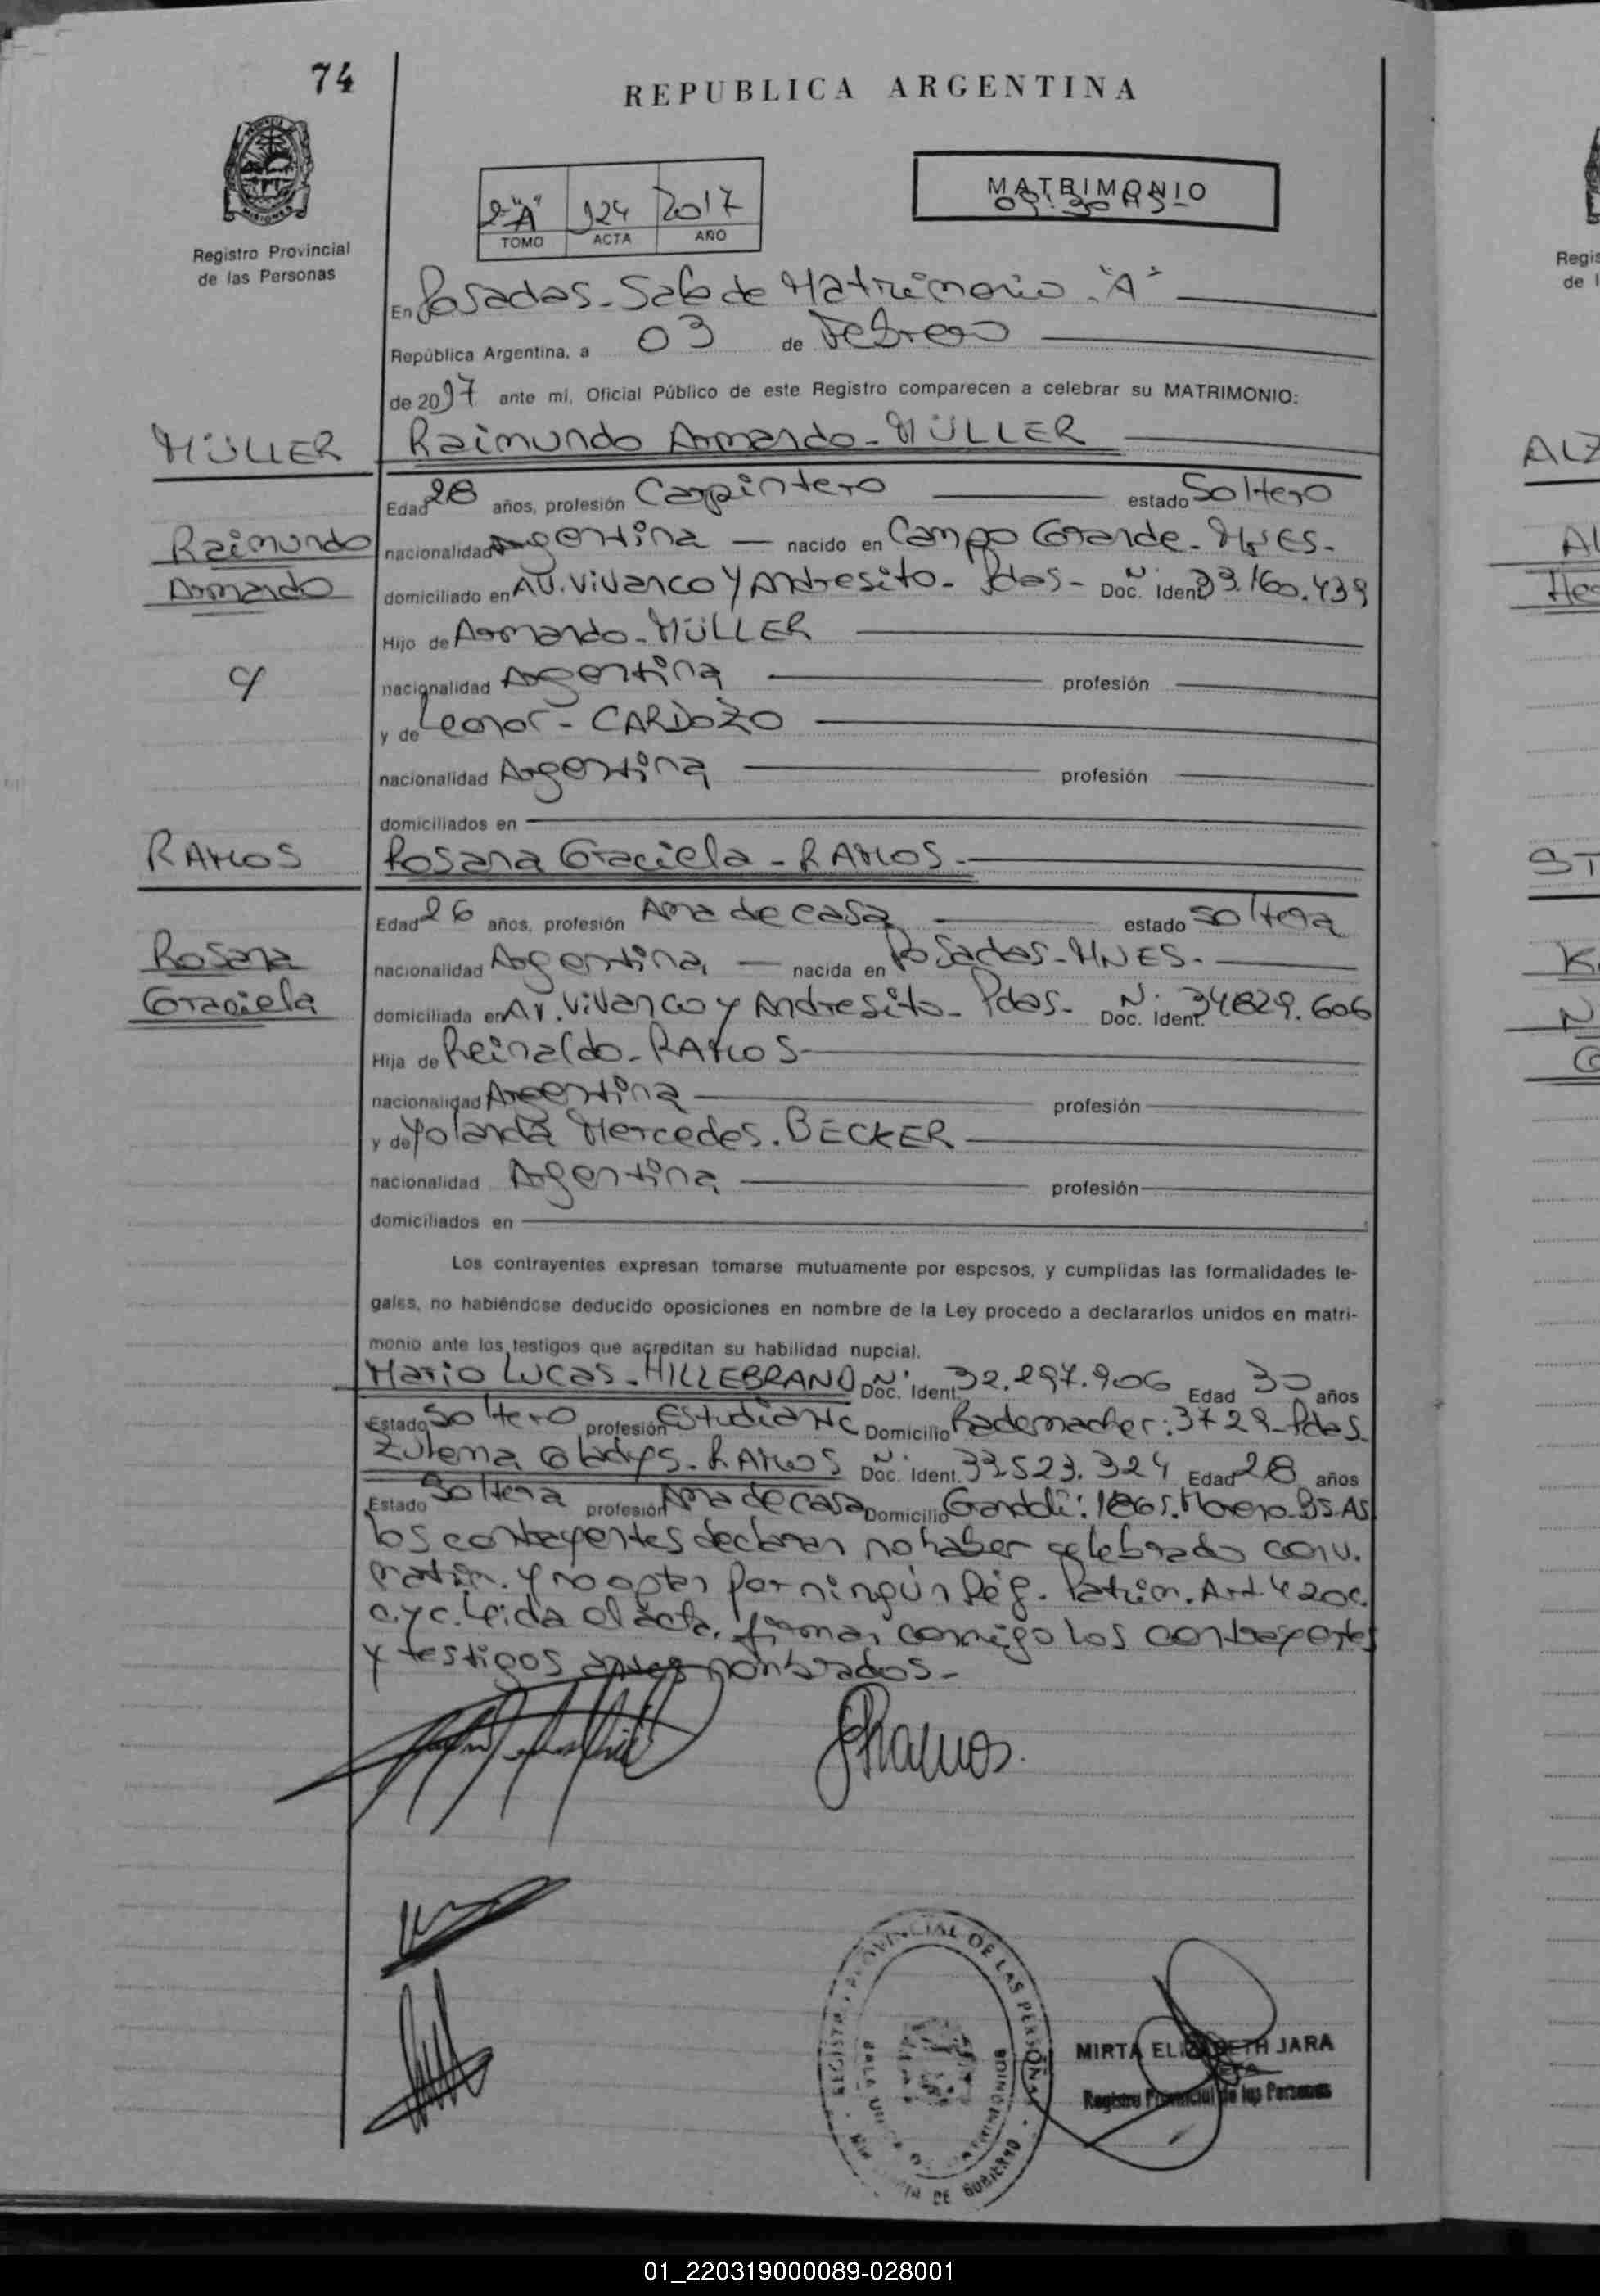 74
REPUBLICA ARGENTINA
MATRIMONIO
09:30 HS-
2"A" 124 2017
TOMO ACTA AÑO
Registro Provincial
de las Personas
En Posadas - Sala de Matrimonio "A"
República Argentina, a 03 de Febrero
de 2017 ante mi, Oficial Público de este Registro comparecen a celebrar su MATRIMONIO:
MÜLLER Raimundo Armando - MÜLLER
Edad 28 años, profesión Carpintero estado Soltero
Raimundo nacionalidad Argentina — nacido en Campo Grande - MNES -
Armando domiciliado en AV. Vivanco Y Andresito - Pdas - Doc. Ident. N° 33.160.439
Hijo de Armando - MÜLLER
c/ nacionalidad Argentina profesión
y de Leonor - CARDOZO
nacionalidad Argentina profesión
domiciliados en
RAMOS Rosana Graciela - RAMOS -
Edad 26 años, profesión Ama de casa estado soltera
Rosana nacionalidad Argentina — nacida en Posadas - MNES -
Graciela domiciliada en AV. Vivanco y Andresito - Pdas - Doc. Ident. N° 34.829.606
Hija de Reinaldo - RAMOS
nacionalidad Argentina profesión
y de Yolanda Mercedes - BECKER
nacionalidad Argentina profesión
domiciliados en
Los contrayentes expresan tomarse mutuamente por esposos, y cumplidas las formalidades le-
gales, no habiéndose deducido oposiciones en nombre de la Ley procedo a declararlos unidos en matri-
monio ante los testigos que acreditan su habilidad nupcial.
Mario Lucas - HILLEBRAND Doc. Ident. N° 32.297.906 Edad 30 años
Estado Soltero profesión Estudiante Domicilio Rademacher: 3729 - Pdas.
Zulema Gladys - RAMOS Doc. Ident. N° 33.523.324 Edad 28 años
Estado Soltera profesión Ama de casa Domicilio : 1865. Moreno - BS-AS
los contrayentes declaran no haber celebrado conv.
matrim. y no optan por ningún Rég. Patrim. Art 420 c.
c.y c. Leida el acta, firman conmigo los contrayentes
y testigos antes nombrados -
Ramos.
REGISTRO PROVINCIAL DE LAS PERSONAS
MIRTA ELIZABETH JARA
JEFA
Registro Provincial de las Personas
01_220319000089-028001